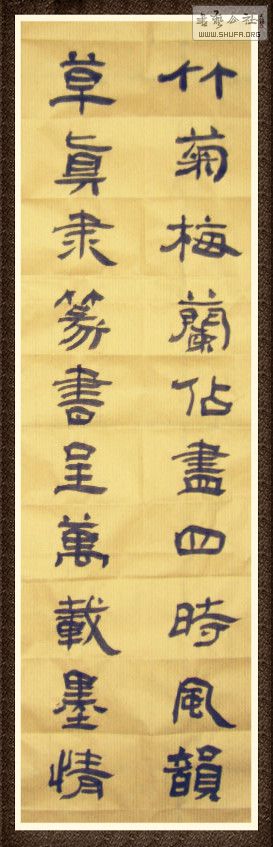 竹菊梅蘭佔盡四時風韻
草眞隶篆書呈萬載墨情
书艺公社
WWW.SHUFA.ORG